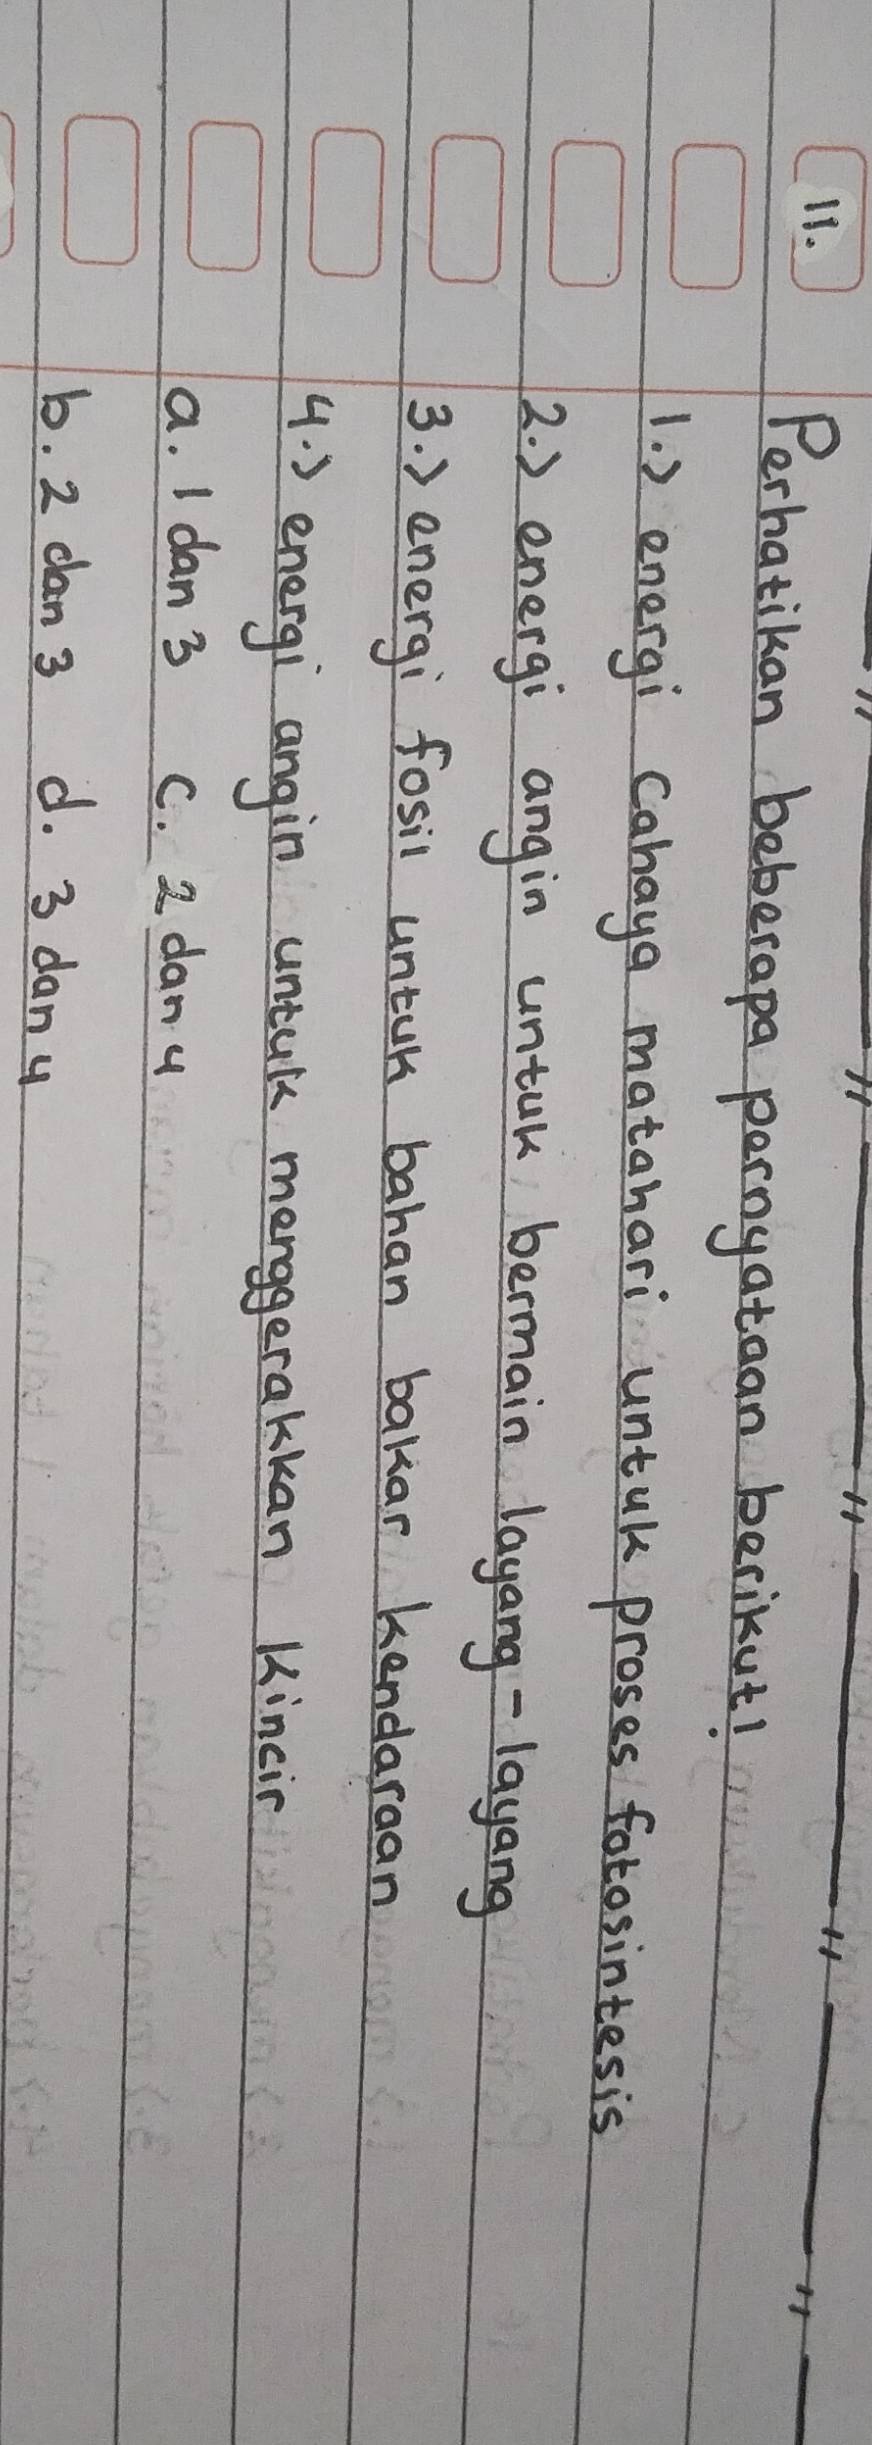 11. Perhatikan beberapa pernyataan berikut!
1.) energi cahaya matahari untuk proses fotosintesis
2.) energi angin untuk bermain layang-layang
3.) energi fosil untuk bahan bakar kendaraan
4.) energi angin untuk menggerakkan kincir
a. 1 dan 3 c. 2 dan 4
b. 2 dan 3 d. 3 dan 4